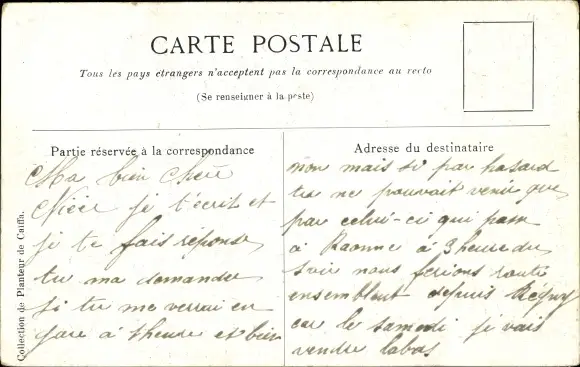 CARTE POSTALE
Tous les pays etrangers n'acceptent pas la correspondance au recto
(Se renseigner à la poste)
Partie réservée à la correspondance
Ma bien chère
Nièce je t'écrit et
je te fais réponse
tu ma demander
si tu me verrai en
gare à heure et bien
Adresse du destinataire
non mais si par hasard
tu ne pouvait venir que
par celui-ci qui passe
à Raonne à 3 heure du
soir nous ferions route
ensemblent depuis Régny
car le samedi je vais
vendre labas
Collection de Planteur de Caïffa.